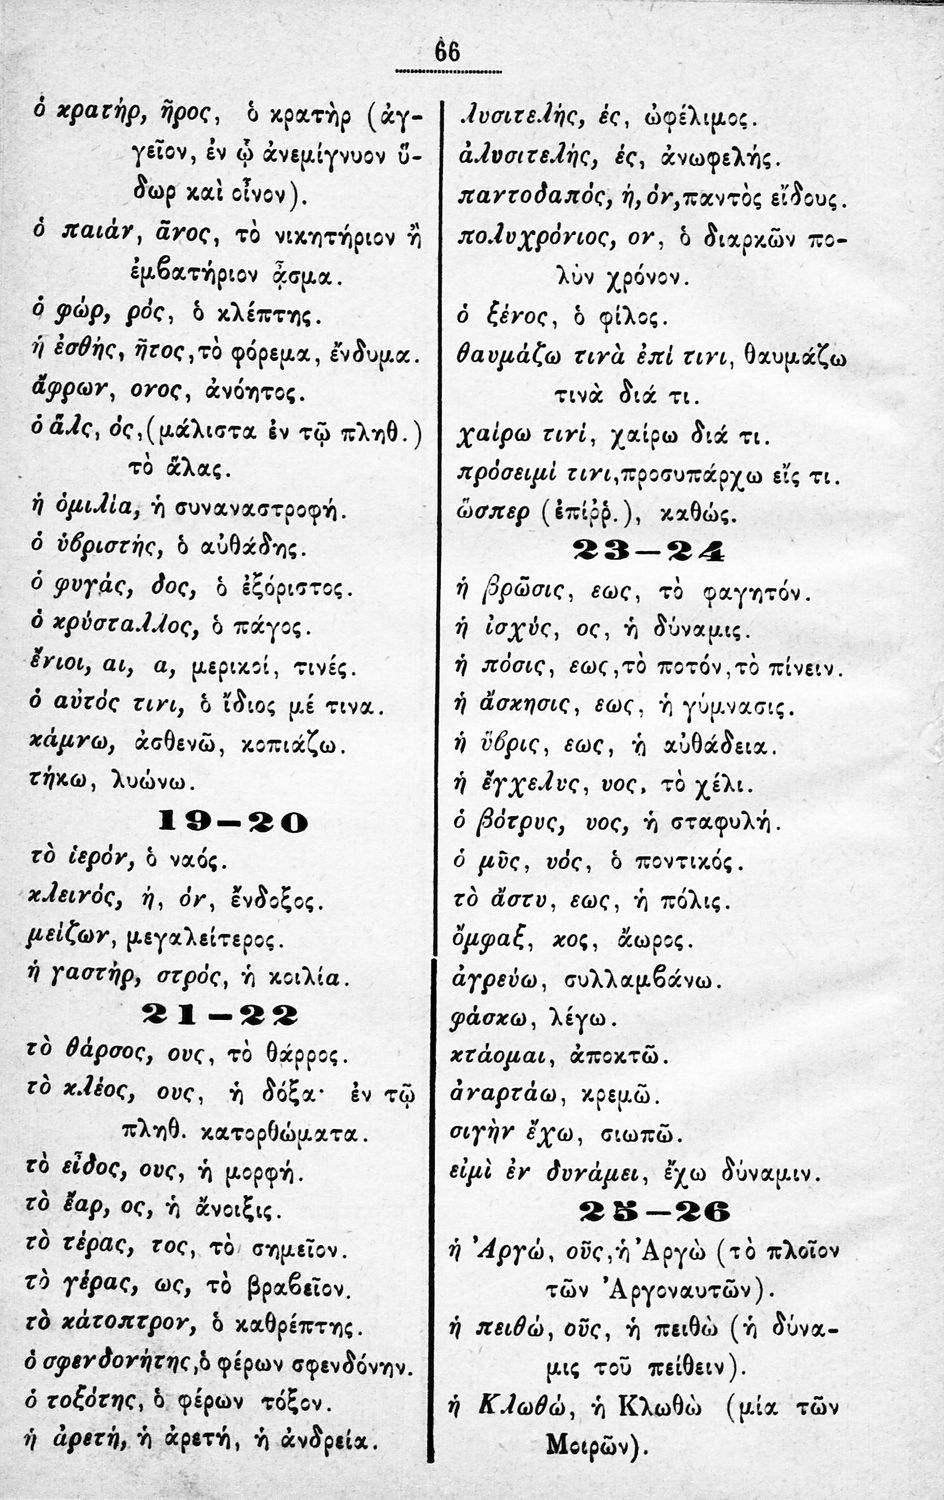 66
ὁ κρατήρ, ῆρος, ὁ κρατὴρ (ἀγ-
γεῖον, ἐν ᾧ ἀνεμίγνυον ὕ-
δωρ καὶ οἶνον).
ὁ παιάν, ᾶνος, τὸ νικητήριον ἢ
ἐμβατήριον ᾆσμα.
ὁ φώρ, ρός, ὁ κλέπτης.
ἡ ἐσθής, ῆτος, τὸ φόρεμα, ἔνδυμα.
ἄφρων, ονος, ἀνόητος.
ὁ ἅλς, ός, (μάλιστα ἐν τῷ πληθ.)
τὸ ἅλας.
ἡ ὁμιλία, ἡ συναναστροφή.
ὁ ὑβριστής, ὁ αὐθάδης.
ὁ φυγάς, δος, ὁ ἐξόριστος.
ὁ κρύσταλλος, ὁ πάγος.
ἔνιοι, αι, α, μερικοί, τινές.
ὁ αὐτός τινι, ὁ ἴδιος μέ τινα.
κάμνω, ἀσθενῶ, κοπιάζω.
τήκω, λυώνω.
19—20
τὸ ἱερόν, ὁ ναός.
κλεινός, ή, όν, ἔνδοξος.
μείζων, μεγαλείτερος.
ἡ γαστήρ, στρός, ἡ κοιλία.
21—22
τὸ θάρσος, ους, τὸ θάρρος.
τὸ κλέος, ους, ἡ δόξα· ἐν τῷ
πληθ. κατορθώματα.
τὸ εἶδος, ους, ἡ μορφή.
τὸ ἔαρ, ος, ἡ ἄνοιξις.
τὸ τέρας, τος, τὸ σημεῖον.
τὸ γέρας, ως, τὸ βραβεῖον.
τὸ κάτοπτρον, ὁ καθρέπτης.
ὁ σφενδονήτης, ὁ φέρων σφενδόνην.
ὁ τοξότης, ὁ φέρων τόξον.
ἡ ἀρετή, ἡ ἀρετή, ἡ ἀνδρεία.
λυσιτελής, ές, ὠφέλιμος.
ἀλυσιτελής, ές, ἀνωφελής.
παντοδαπός, ή, όν, παντὸς εἴδους.
πολυχρόνιος, ον, ὁ διαρκῶν πο-
λὺν χρόνον.
ὁ ξένος, ὁ φίλος.
θαυμάζω τινὰ ἐπί τινι, θαυμάζω
τινὰ διά τι.
χαίρω τινί, χαίρω διά τι.
πρόσειμί τινι, προσυπάρχω εἴς τι.
ὥσπερ (ἐπίῤῥ.), καθώς.
23—24
ἡ βρῶσις, εως, τὸ φαγητόν.
ἡ ἰσχύς, ος, ἡ δύναμις.
ἡ πόσις, εως, τὸ ποτόν, τὸ πίνειν.
ἡ ἄσκησις, εως, ἡ γύμνασις.
ἡ ὕβρις, εως, ἡ αὐθάδεια.
ἡ ἔγχελυς, υος, τὸ χέλι.
ὁ βότρυς, υος, ἡ σταφυλή.
ὁ μῦς, υός, ὁ ποντικός.
τὸ ἄστυ, εως, ἡ πόλις.
ὄμφαξ, κος, ἄωρος.
ἀγρεύω, συλλαμβάνω.
φάσκω, λέγω.
κτάομαι, ἀποκτῶ.
ἀναρτάω, κρεμῶ.
σιγὴν ἔχω, σιωπῶ.
εἰμὶ ἐν δυνάμει, ἔχω δύναμιν.
25—26
ἡ Ἀργώ, οῦς, ἡ Ἀργὼ (τὸ πλοῖον
τῶν Ἀργοναυτῶν).
ἡ πειθώ, οῦς, ἡ πειθὼ (ἡ δύνα-
μις τοῦ πείθειν).
ἡ Κλωθώ, ἡ Κλωθὼ (μία τῶν
Μοιρῶν).